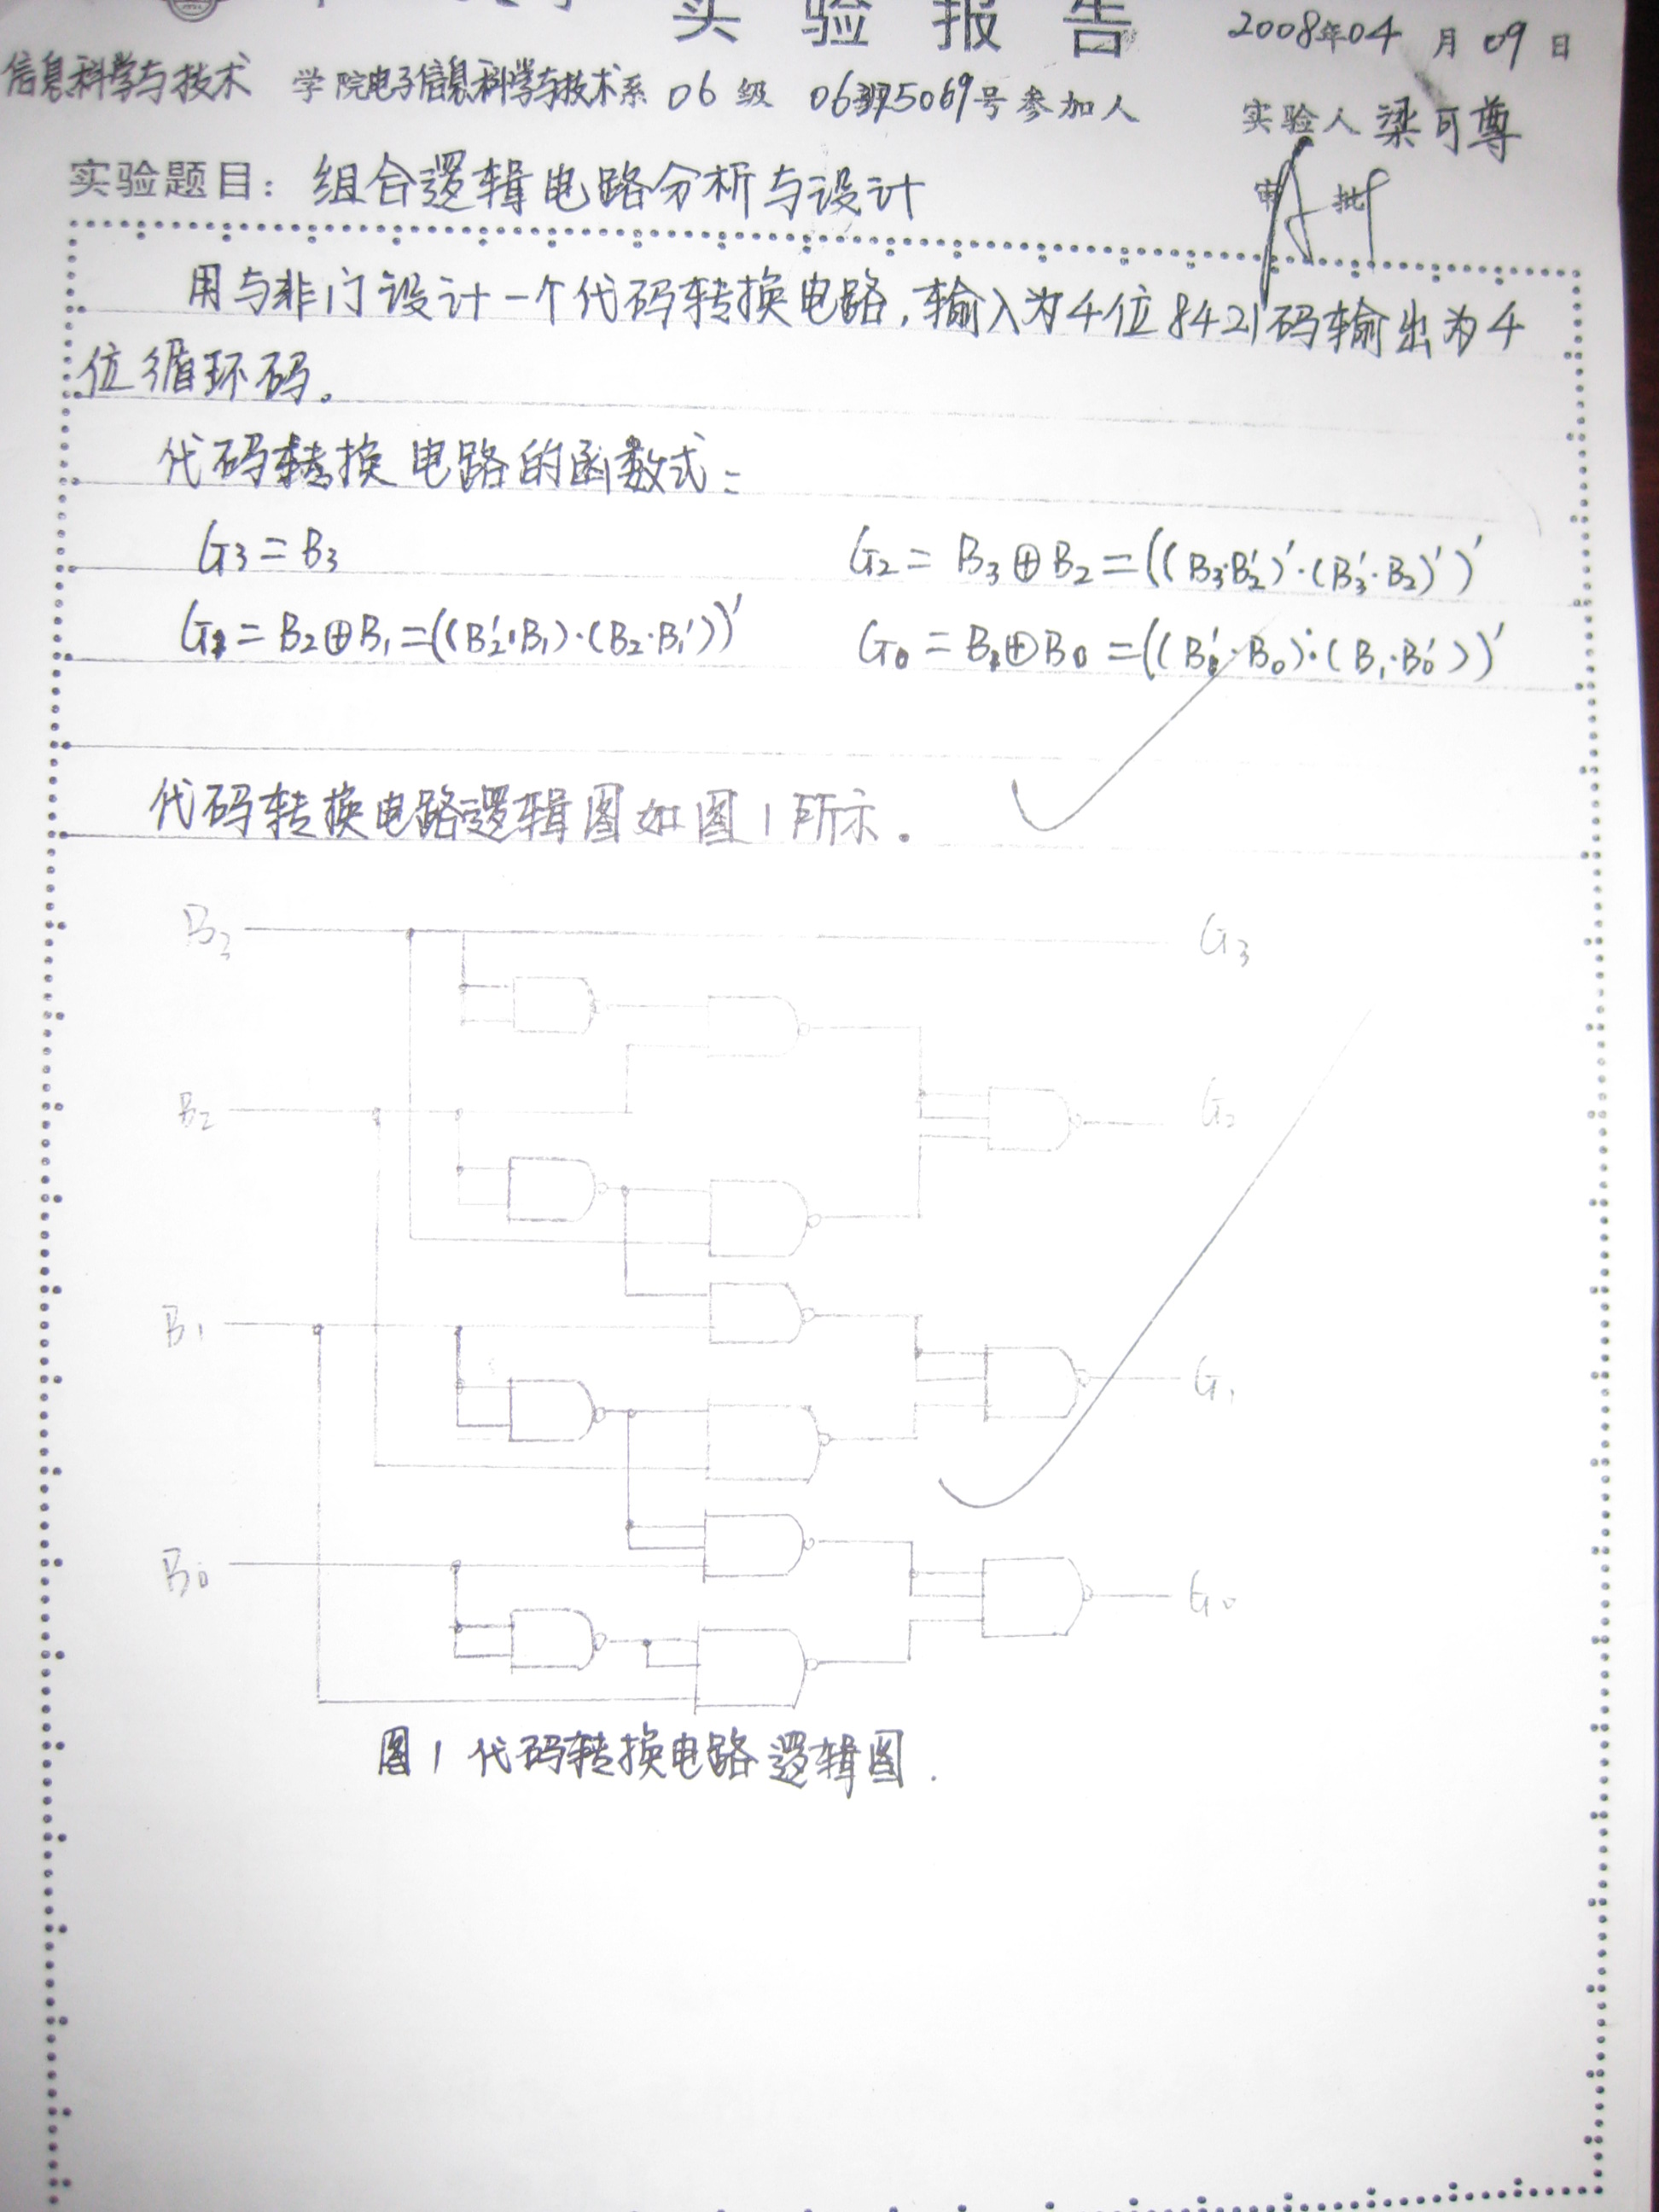 实验报告
2008年04月09日
信息科学与技术 学院电子信息科学与技术系 06级 06375069号参加人
实验人 梁可尊
实验题目: 组合逻辑电路分析与设计
审批
用与非门设计一个代码转换电路,输入为4位8421码输出为4
位循环码。
代码转换电路的函数式:
G3 = B3
G2 = B3⊕B2 = ((B3·B2')'·(B3'·B2)')'
G1 = B2⊕B1 = ((B2'·B1)·(B2·B1'))'
G0 = B1⊕B0 = ((B1'·B0)·(B1·B0'))'
代码转换电路逻辑图如图1所示.
B3
G3
B2
G2
B1
G1
B0
G0
图1 代码转换电路逻辑图.